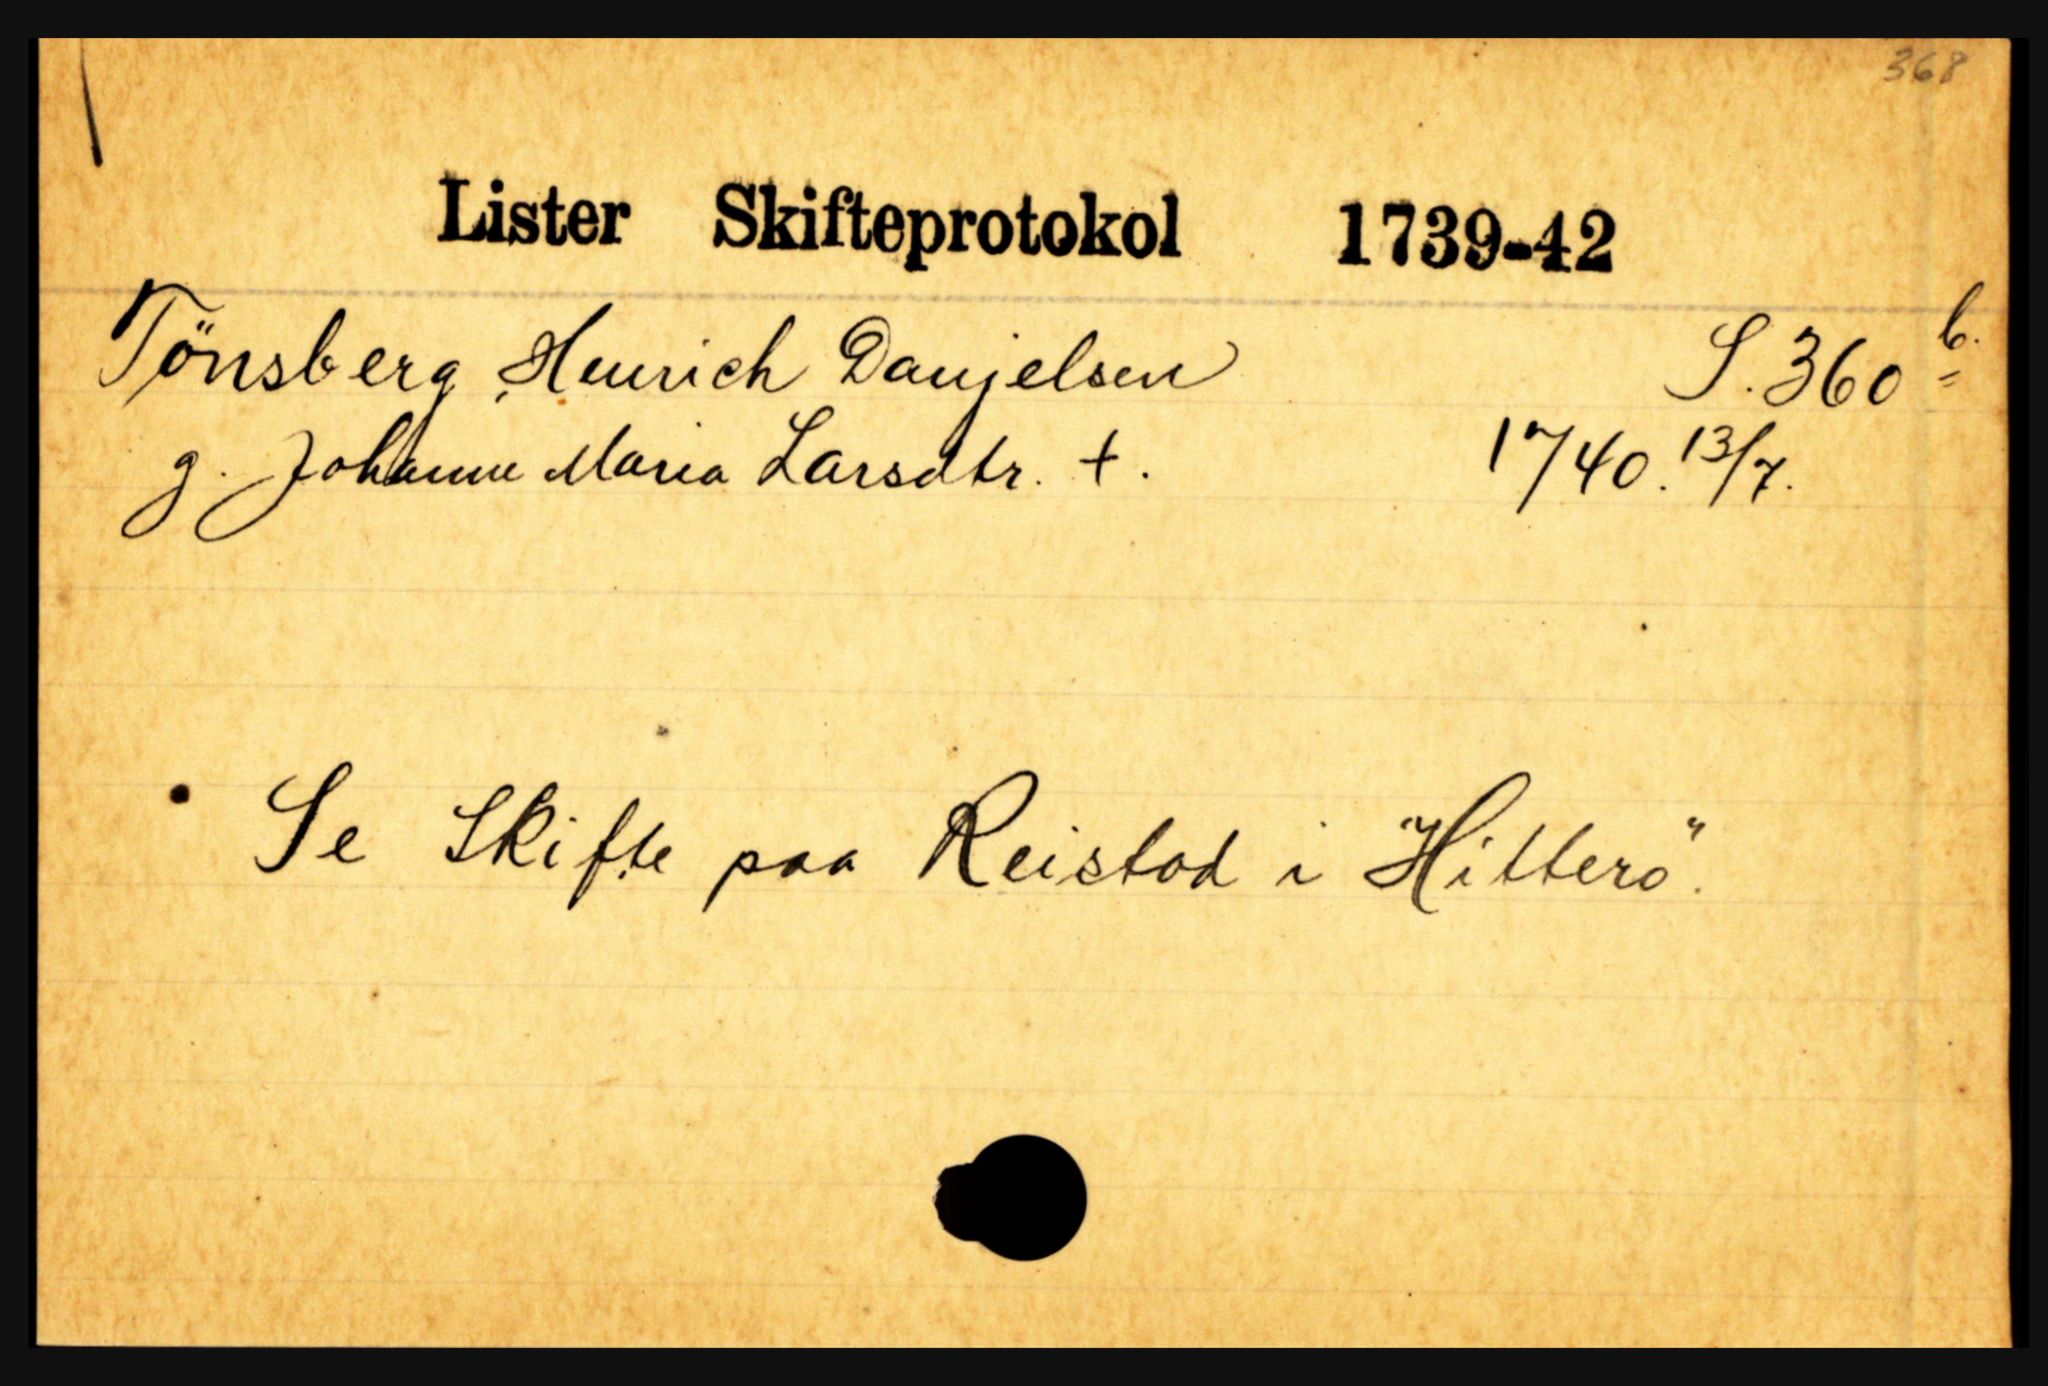 368
Lister Skifteprotokol 1739-42
Tönsberg, Henrich Danjelsen S. 360 b.
g. Johanne Maria Larsdtr. †. 1740. 13/7.
Se Skifte paa Reistad i "Hitterö".